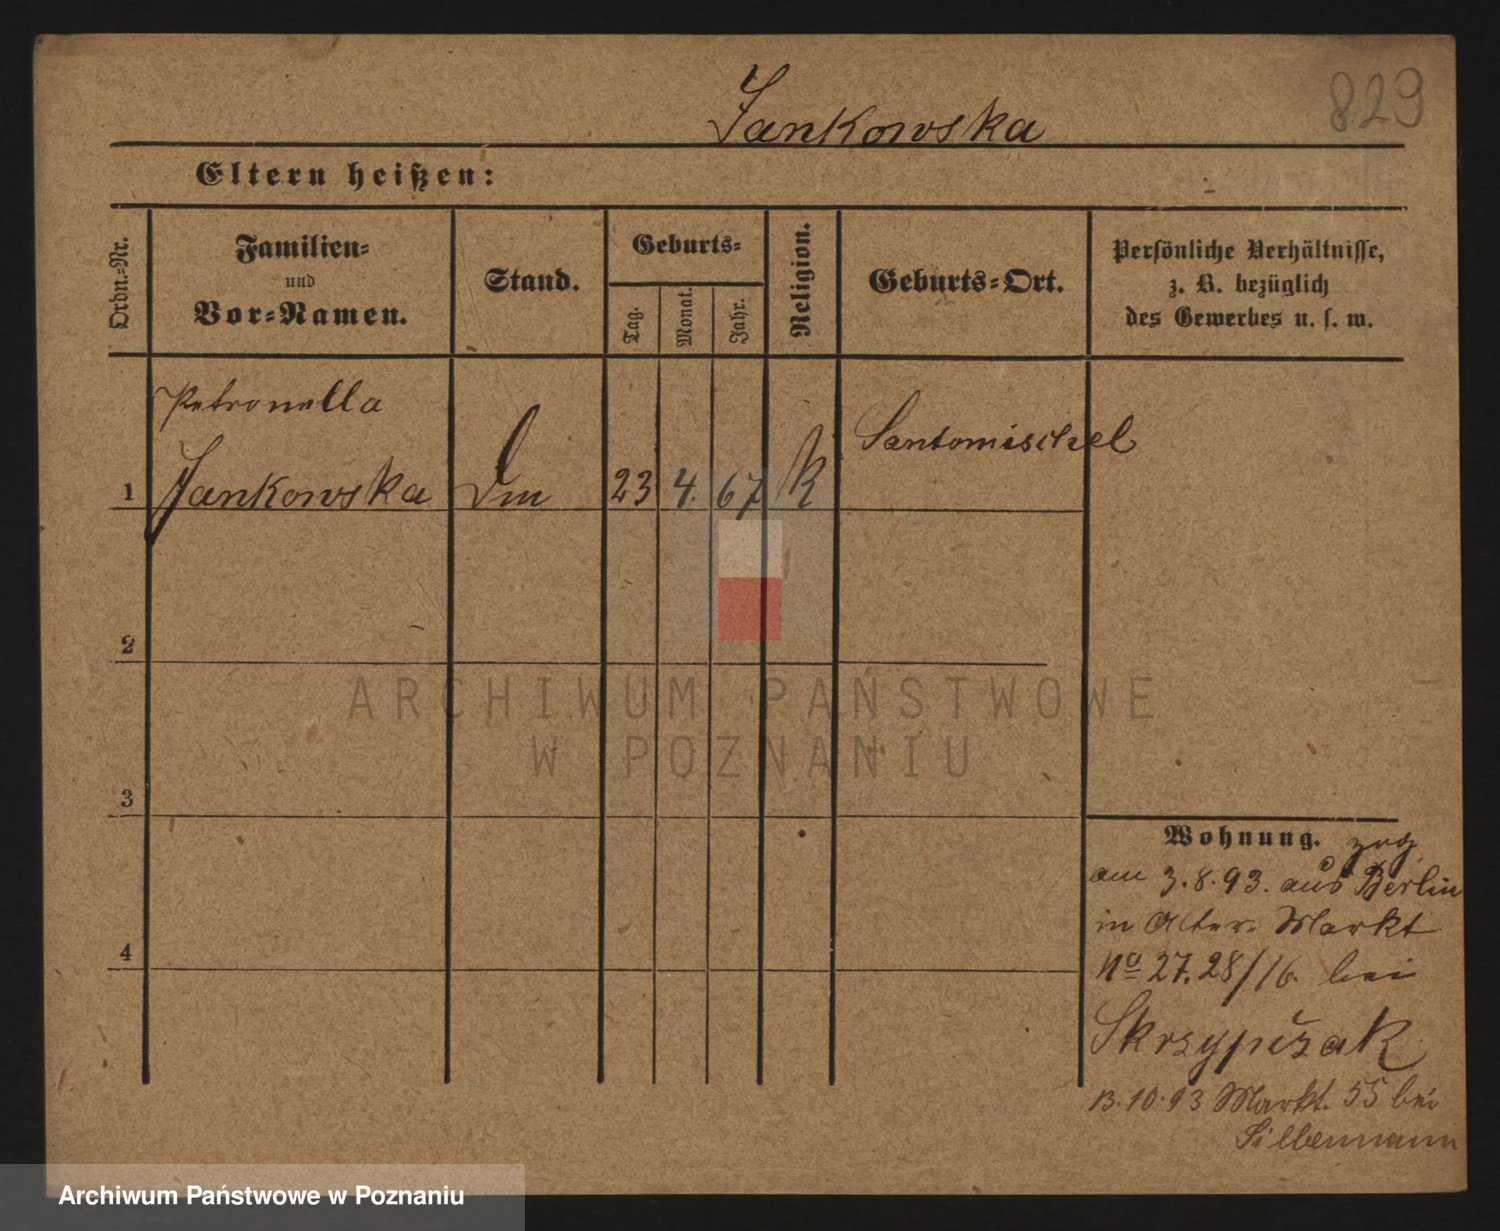 829
Jankowska
Eltern heißen:
Ordn.-Nr.
Familien-
und
Vor-Namen.
Stand.
Geburts-
Tag.
Monat.
Jahr.
Religion.
Geburts-Ort.
Persönliche Verhältnisse,
z. B. bezüglich
des Gewerbes u. s. w.
Petronella
1 Jankowska 23 4. 67 k Santomischel
2
3
4
Wohnung. zog
am 3.8.93. aus Berlin
in Alter Markt
No 27.28/16. bei
Skrzypczak
13.10.93 Markt. 55 bei
Silbermann
ARCHIWUM PAŃSTWOWE
W POZNANIU
Archiwum Państwowe w Poznaniu